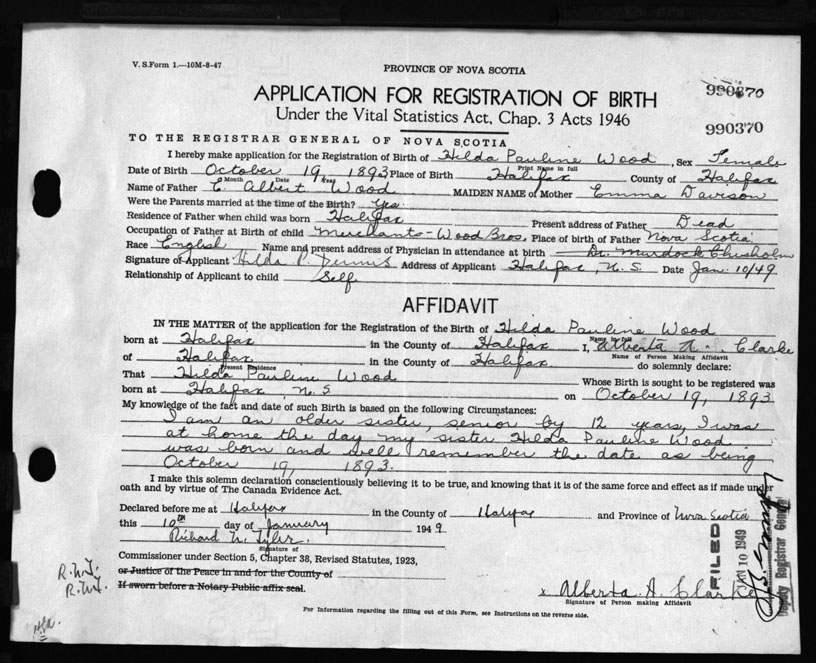 V. S. Form 1.—10M-8-47
PROVINCE OF NOVA SCOTIA
APPLICATION FOR REGISTRATION OF BIRTH
990370
Under the Vital Statistics Act, Chap. 3 Acts 1946
990370
TO THE REGISTRAR GENERAL OF NOVA SCOTIA
I hereby make application for the Registration of Birth of Hilda Pauline Wood, Sex Female
Print Name in full
Date of Birth October 19 1893 Place of Birth Halifax County of Halifax
Month Date Year
Name of Father C. Albert Wood MAIDEN NAME of Mother Emma Davison
Were the Parents married at the time of the Birth? Yes
Residence of Father when child was born Halifax Present address of Father Dead
Occupation of Father at Birth of child Merchant - Wood Bros. Place of birth of Father Nova Scotia
Race English Name and present address of Physician in attendance at birth Dr. Murdock Chisholm
Signature of Applicant Hilda P. Dennis Address of Applicant Halifax, N. S. Date Jan. 10/49
Relationship of Applicant to child Self
AFFIDAVIT
IN THE MATTER of the application for the Registration of the Birth of Hilda Pauline Wood
Name in full
born at Halifax in the County of Halifax I, Alberta A. Clarke
Name of Person Making Affidavit
of Halifax in the County of Halifax do solemnly declare:
Present Residence
That Hilda Pauline Wood Whose Birth is sought to be registered was
born at Halifax, N. S. on October 19, 1893
My knowledge of the fact and date of such Birth is based on the following Circumstances:
I am an older sister, senior by 12 years, I was
at home the day my sister Hilda Pauline Wood
was born and well remember the date as being
October 19, 1893.
I make this solemn declaration conscientiously believing it to be true, and knowing that it is of the same force and effect as if made under
oath and by virtue of The Canada Evidence Act.
Declared before me at Halifax in the County of Halifax and Province of Nova Scotia
this 10th day of January 1949
Richard N. Tyler.
Signature of
Commissioner under Section 5, Chapter 38, Revised Statutes, 1923,
or Justice of the Peace in and for the County of
If sworn before a Notary Public affix seal.
R.N.T.
R.N.T.
x Alberta A. Clarke
Signature of Person making Affidavit
For Information regarding the filling out of this Form, see Instructions on the reverse side.
FILED
10 1949
Deputy Registrar General